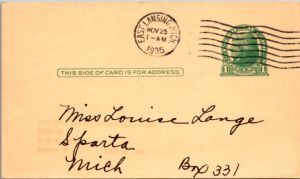 EAST LANSING, MICH.
NOV 25
7-AM
1935
THIS SIDE OF CARD IS FOR ADDRESS
1 1
Miss Louise Lange
Sparta
Mich Box 331